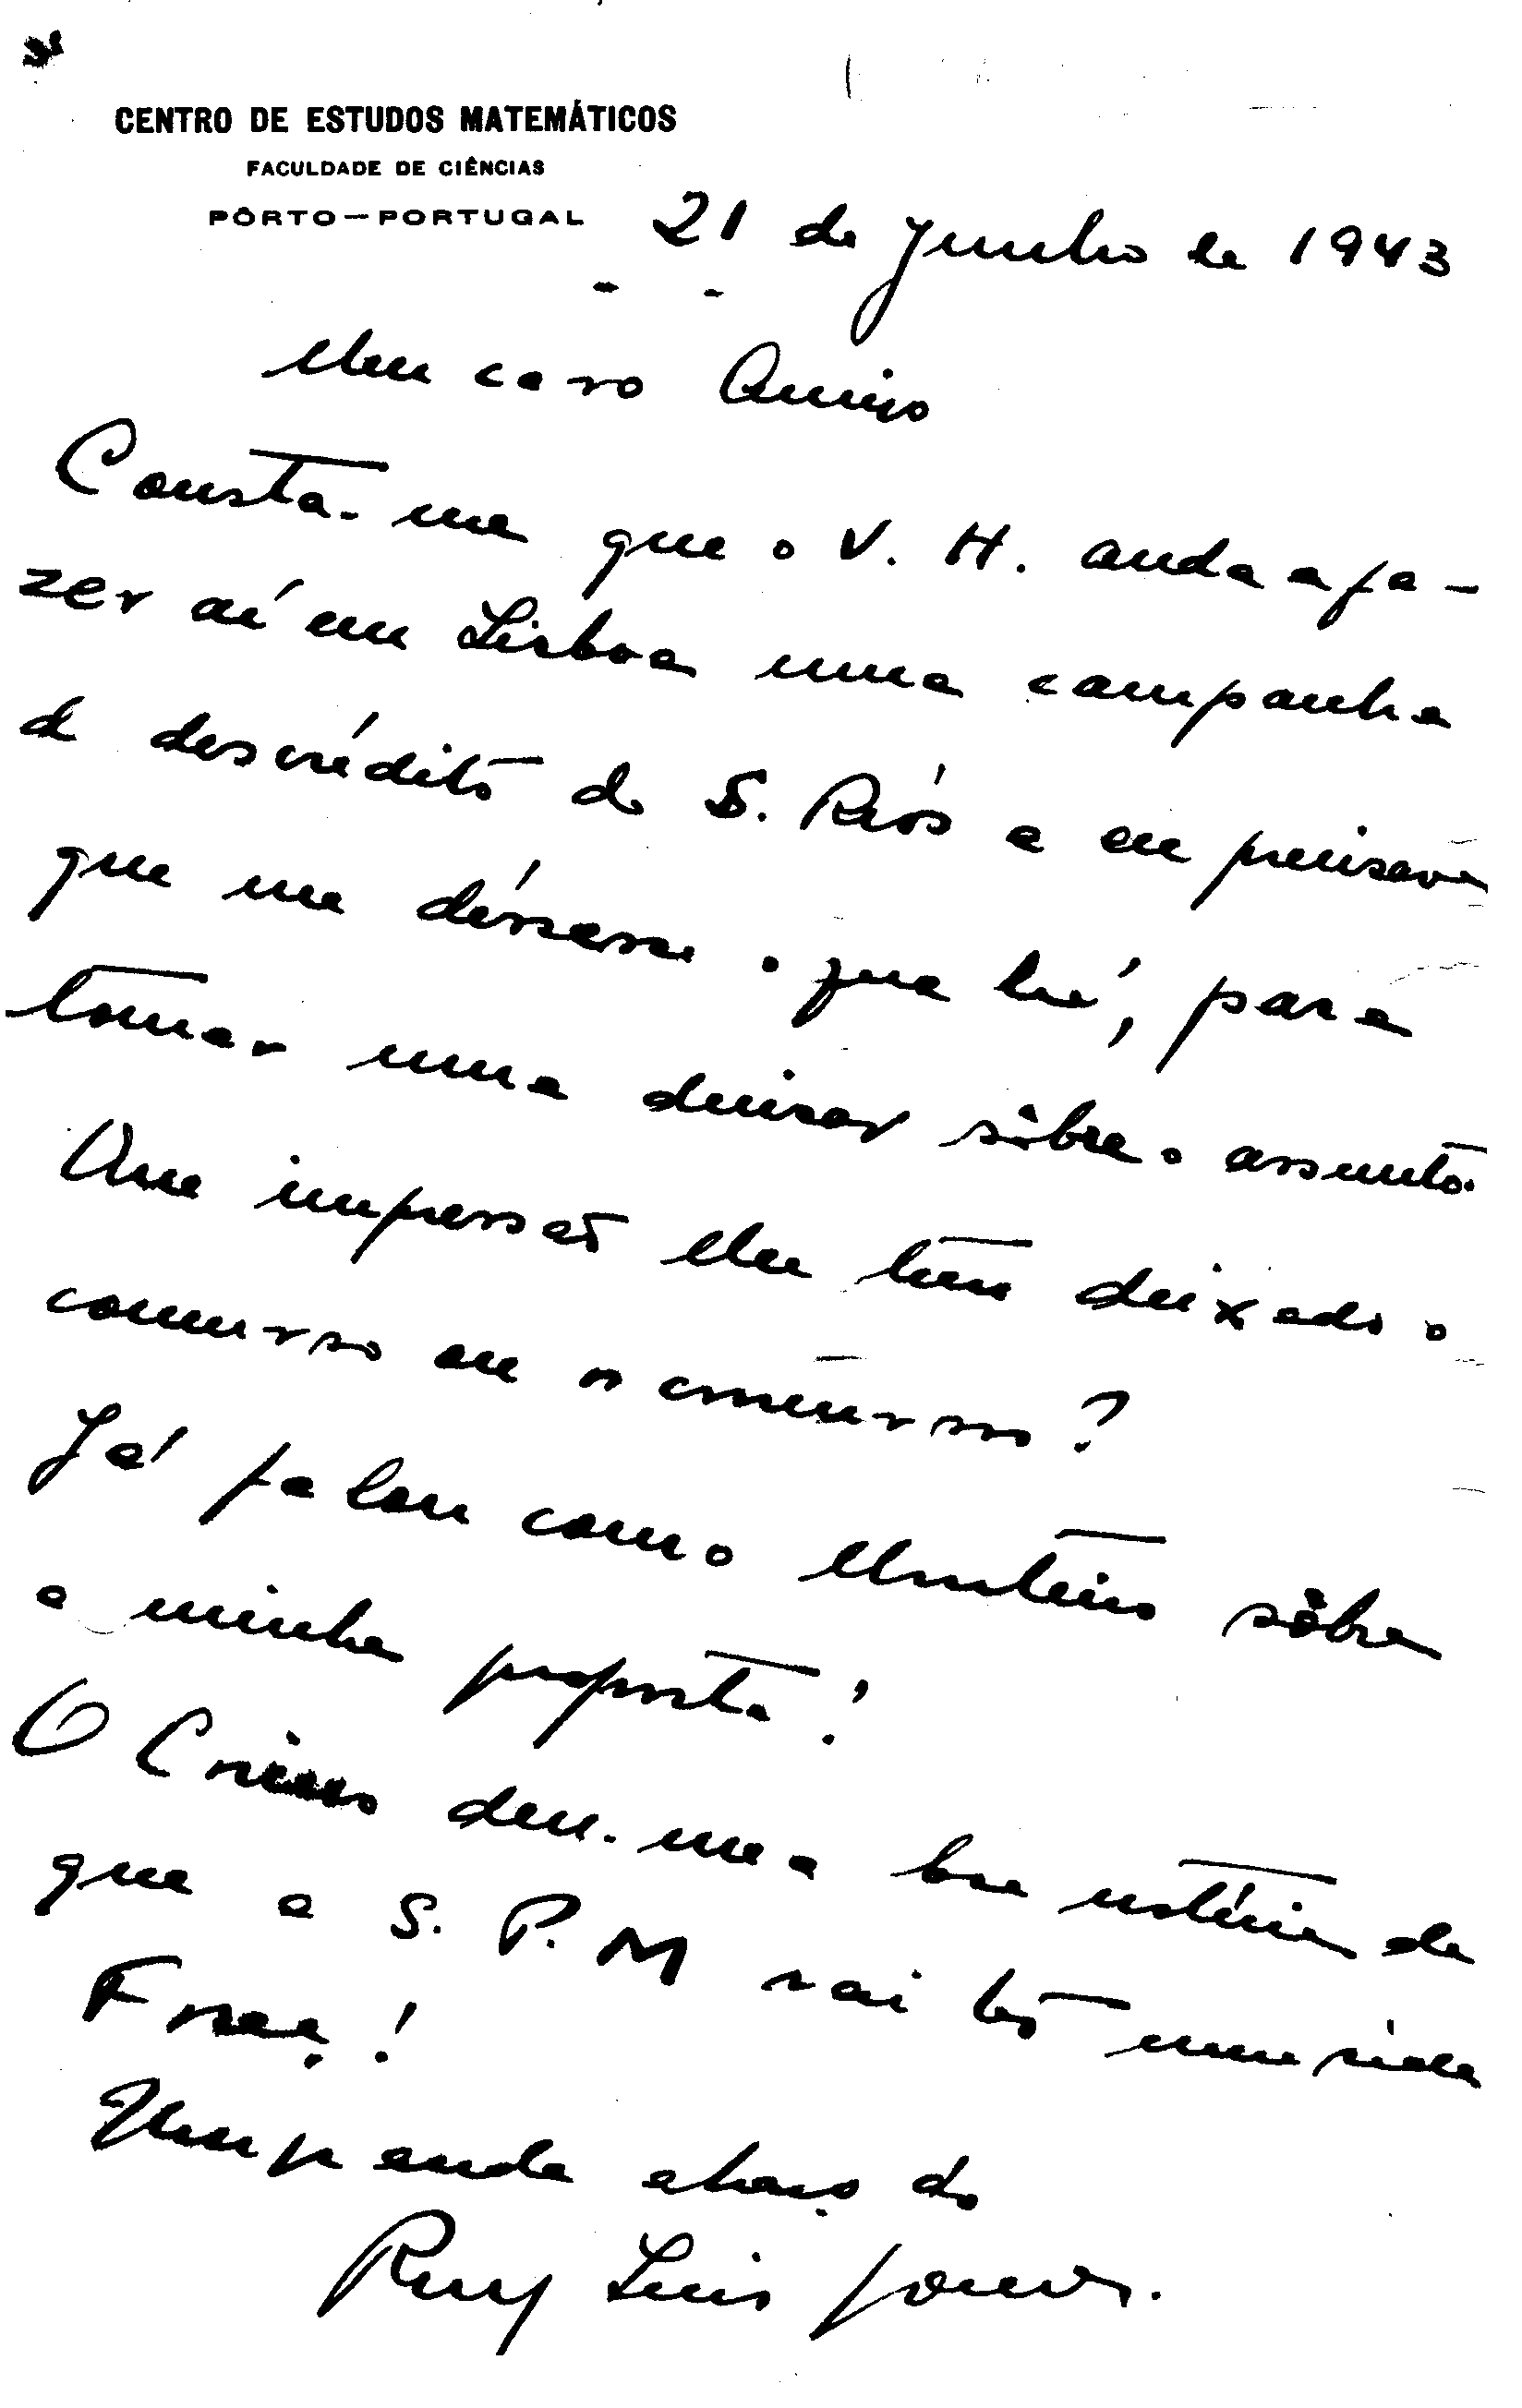 CENTRO DE ESTUDOS MATEMÁTICOS
FACULDADE DE CIÊNCIAS
PÔRTO — PORTUGAL
21 de Junho de 1943
Meu caro Amigo
Consta-me que o V. H. anda a fa-
zer aí em Lisboa uma campanha
de descrédito do S. Ríos e eu precisava
que me dissesse o que há, para
tomar uma decisão sôbre o assunto.
Que impressão lhe tem deixado o
concurso ou os concursos?
Já falou com o Monteiro sôbre
a minha proposta?
O deu-me a boa notícia de
que a S. P. M vai ter uma sede
Fixe!
Um grande abraço do
Ruy Luis Gomes.